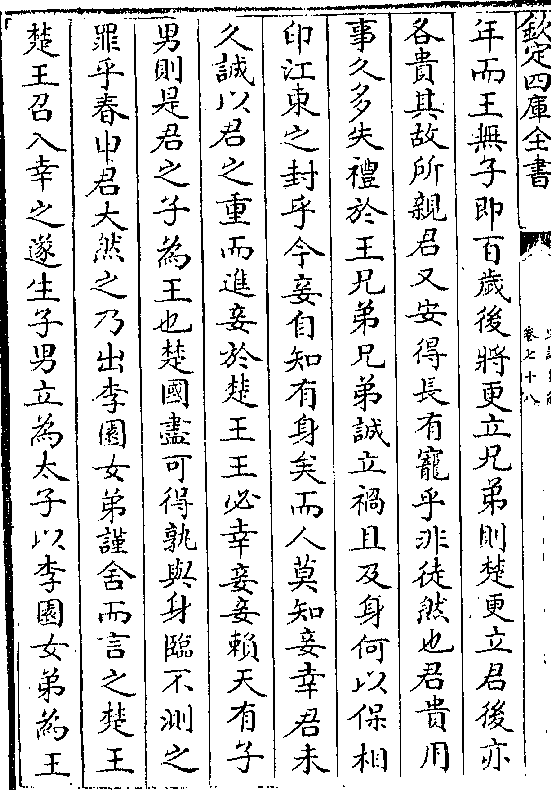 欽定四庫全書
卷七十八
年而王無子即百歲後將更立兄弟則楚更立君後亦
各貴其故所親君又安得長有寵乎非徒然也君貴用
事久多失禮於王兄弟兄弟誠立禍且及身何以保相
印江東之封乎今妾自知有身矣而人莫知妾幸君未
久誠以君之重而進妾於楚王王必幸妾妾賴天有子
男則是君之子為王也楚國盡可得孰與身臨不測之
罪乎春申君大然之乃出李園女弟謹舍而言之楚王
楚王召入幸之遂生子男立為太子以李園女弟為王